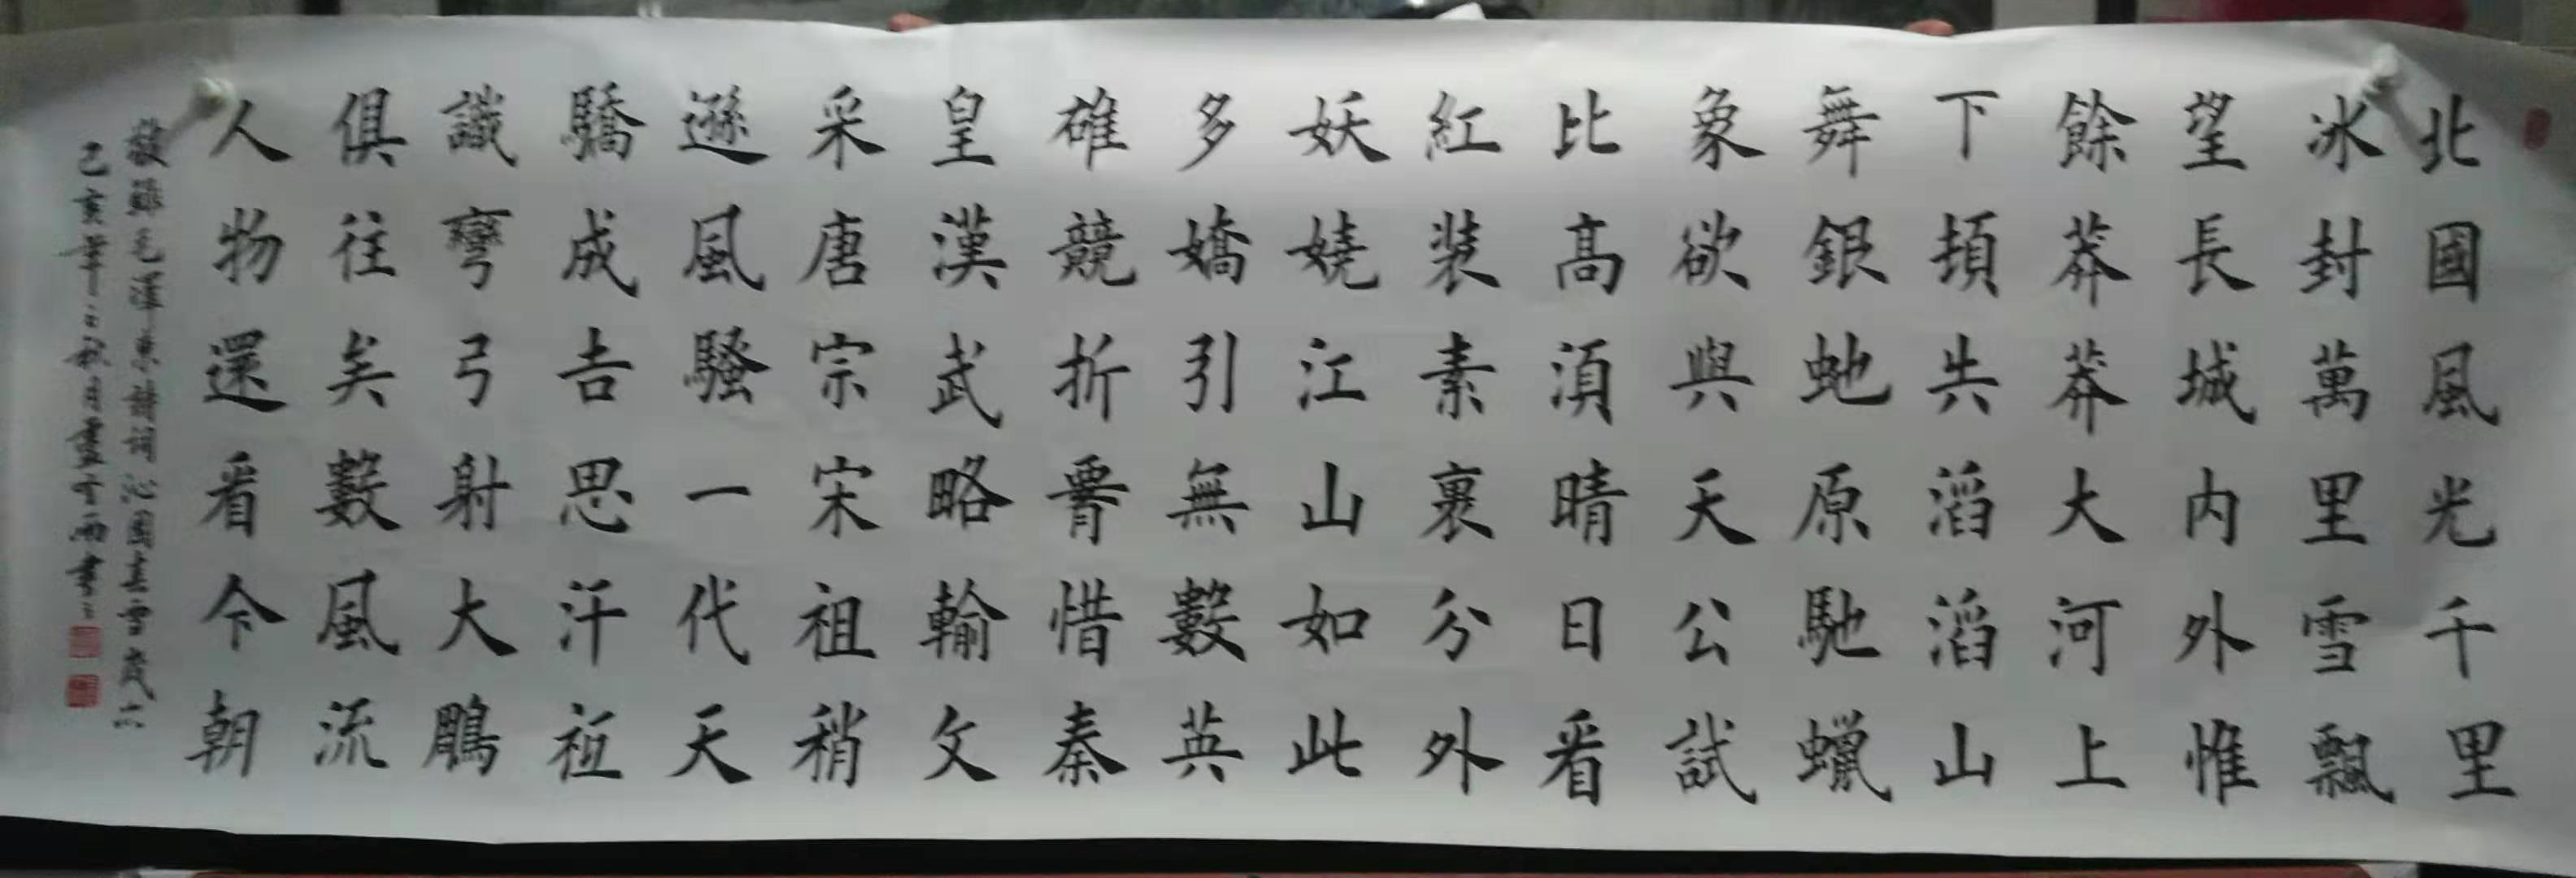 北國風光千里
冰封萬里雪飄
望長城内外惟
餘莽莽大河上
下頓失滔滔山
舞銀蛇原馳蠟
象欲與天公試
比高須晴日看
紅裝素裹分外
妖嬈江山如此
多嬌引無數英
雄競折腰惜秦
皇漢武略輸文
采唐宗宋祖稍
遜風騷一代天
驕成吉思汗祗
識彎弓射大鵰
俱往矣數風流
人物還看今朝
敬録毛澤東詩詞沁園春雪歲六
己亥年之秋月盧雨書之